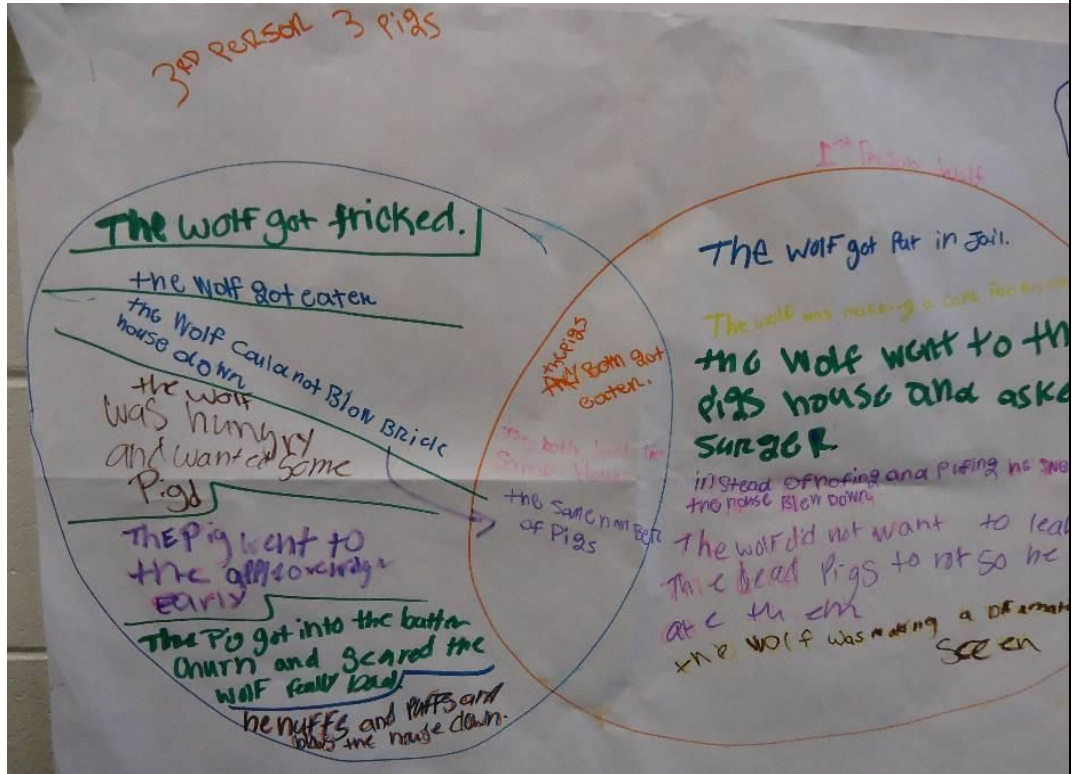 3RD PERSON 3 Pigs
The wolf got tricked.
the wolf got eaten
the Wolf Could not Blow Brick
house down
the wolf
was hungry
and wanted some
Pigd
THE Pig went to
the
early
The Pig got into the butter
Churn and scared the
wolf really bad
he huffs and puffs and
blows the house down.
the pigs
they Both got
eaten.
They both
same
the same number
of Pigs
1st Person Wolf
The wolf got Put in Jail.
The wolf was makeing a cake for
the wolf went to th
pigs house and aske
surger
instead of hofing and pifing he sne
the house Blew Down
The wolf did not want to lea
The dead Pigs to rot so he
ate them
the wolf was making a
sceen